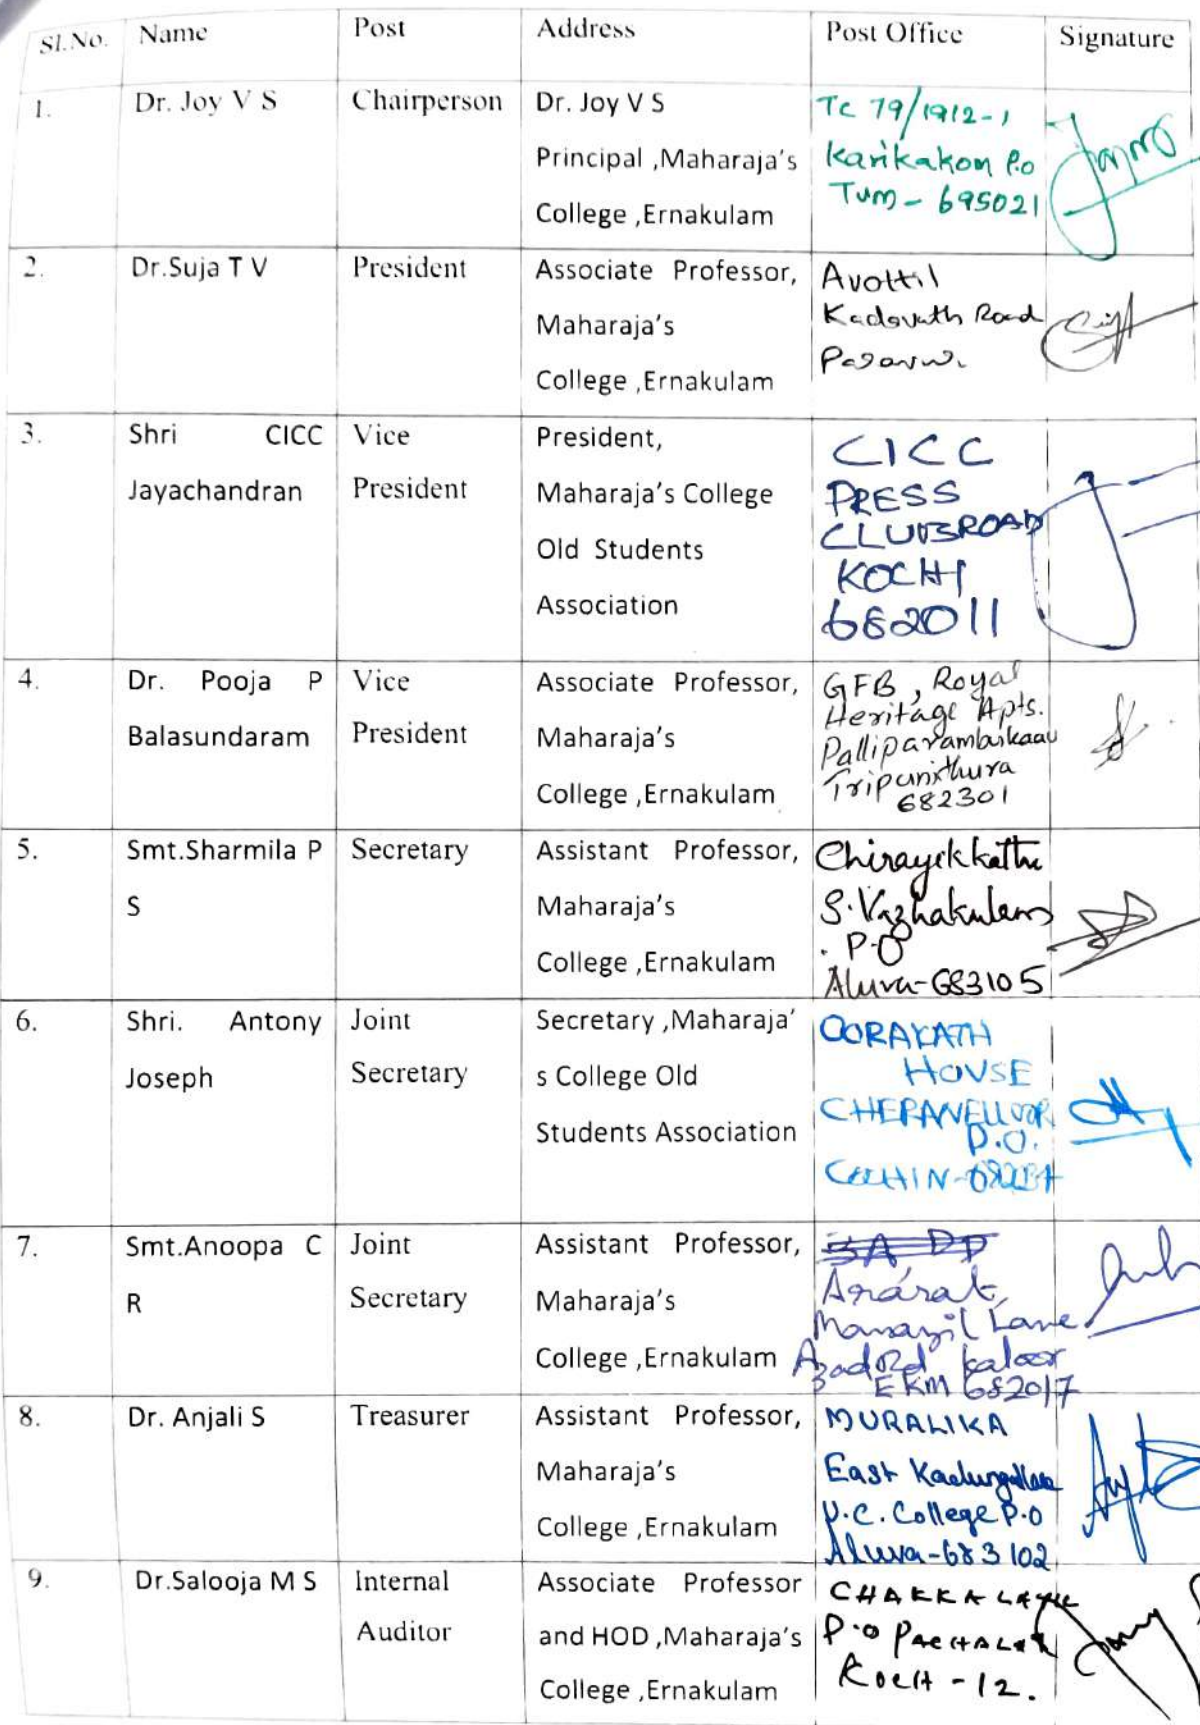 Sl.No. Name Post Address Post Office Signature
1. Dr. Joy V S Chairperson Dr. Joy V S
Principal ,Maharaja's
College ,Ernakulam
TC 79/1912-1
Karikakom P.o
Tvm - 695021
2. Dr.Suja T V President Associate Professor,
Maharaja's
College ,Ernakulam
Avottil
Kadavath Road
3. Shri CICC Vice President,
Jayachandran President Maharaja's College
Old Students
Association
CICC
PRESS
CLUB ROAD
KOCHI
682011
4. Dr. Pooja P Vice Associate Professor,
Balasundaram President Maharaja's
College ,Ernakulam
GFB, Royal
Heritage Apts.
Palliparambukaau
Tripunithura
682301
5. Smt.Sharmila P Secretary Assistant Professor,
S Maharaja's
College ,Ernakulam
Chirayikkathu
S.Vazhakulam
P.O
Aluva-683105
6. Shri. Antony Joint Secretary ,Maharaja'
Joseph Secretary s College Old
Students Association
OORAKATH
HOUSE
CHERANELLOOR
P.O.
COCHIN-
7. Smt.Anoopa C Joint Assistant Professor,
R Secretary Maharaja's
College ,Ernakulam
Ararat,
Manazil Lane
Azad Rd, kaloor
EKM 682017
8. Dr. Anjali S Treasurer Assistant Professor,
Maharaja's
College ,Ernakulam
MURALIKA
East Kadungalloor
U.C. College P.O
Aluva-683102
9. Dr.Salooja M S Internal Associate Professor
Auditor and HOD ,Maharaja's
College ,Ernakulam
P.O PACHALAM
KOCHI -12.